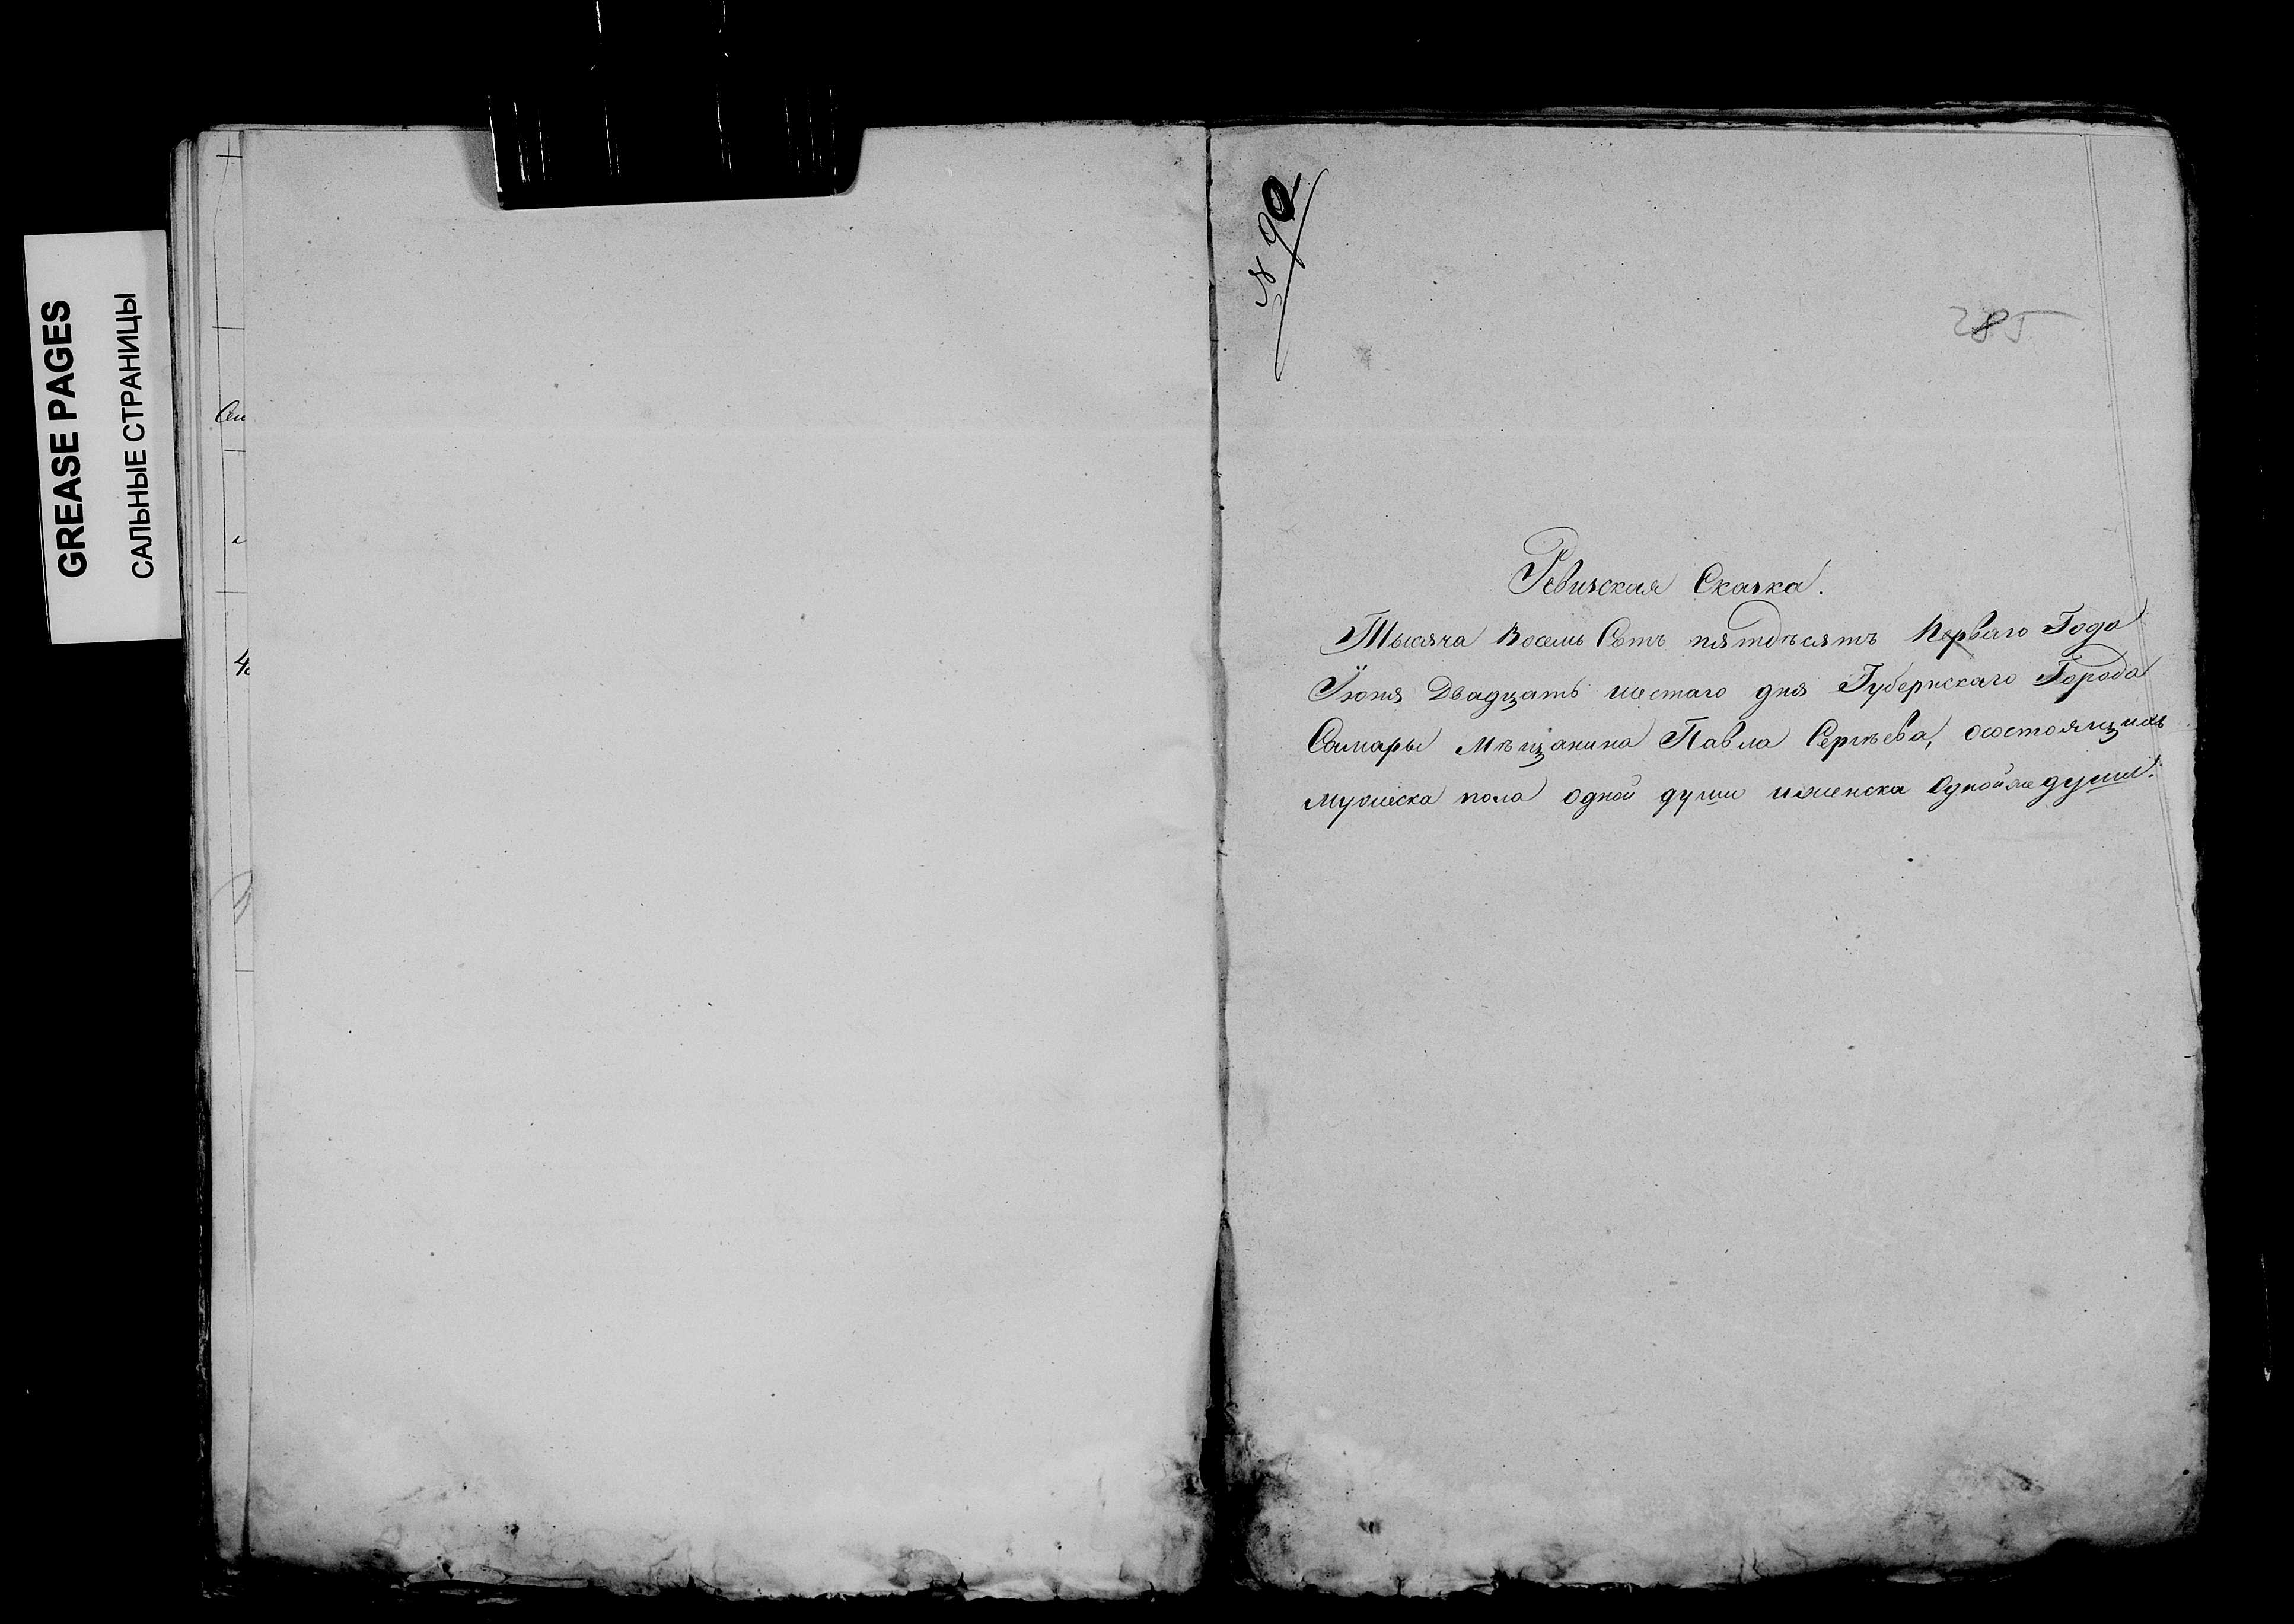 GREASE PAGES
САЛЬНЫЕ СТРАНИЦЫ
№ 90
285
Ревизская Сказка.
Тысяча Восемь Сотъ пятдѣсятъ Перваго Года
Іюня Двадцать шестаго дня Губернскаго Города
Самары Мѣщанина Павла Сергѣева, осостоящихъ
мужеска пола одной души иженска Однойже души.